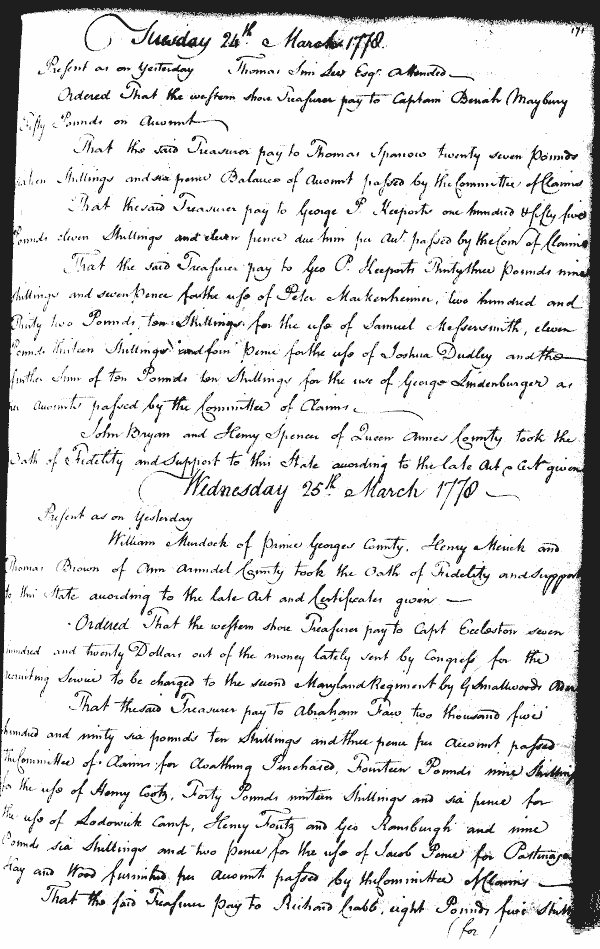 171
Tuesday 24th March 1778.
Present as on Yesterday Thomas Sim Lee Esqr. Attended
Ordered That the western shore Treasurer pay to Captain Beriah Maybury
Fifty Pounds on Account
That the said Treasurer pay to Thomas Sparrow twenty seven Pounds
sixteen Shillings and six pence Balance of Account passed by the Committee of Claims
That the said Treasurer pay to George P. Keeports one hundred & fifty five
Pounds eleven Shillings and eleven pence due him per Act. passed by the Com. of Claims
That the said Treasurer pay to Geo P. Keeports Thirty three Pounds nine
shillings and seven Pence for the use of Peter Mackenheimer, two hundred and
Thirty two Pounds, ten Shillings, for the use of Samuel Messersmith, eleven
Pounds thirteen Shillings and four Pence for the use of Joshua Dudley and the
further Sum of ten Pounds ten Shillings for the use of George Lindenburger as
per Accounts passed by the Committee of Claims.
John Bryan and Henry Spencer of Queen Annes County took the
Oath of Fidelity and Support to this State according to the late Act & Cert. given
Wednesday 25th March 1778
Present as on Yesterday
William Murdock of Prince Georges County, Henry Merick and
Thomas Brown of Ann Arundel County took the Oath of Fidelity and Support
to this State according to the late Act and Certificates given
Ordered That the western shore Treasurer pay to Capt Eccleston seven
hundred and twenty Dollars out of the money lately sent by Congress for the
recruiting Service to be charged to the second Maryland Regiment by G Smallwoods Order
That the said Treasurer pay to Abraham Faw two thousand five
hundred and ninty six pounds ten Shillings and three pence per Account passed
the Committee of Claims for Cloathing Purchased, Fourteen Pounds nine Shillings
for the use of Henry Cootz, Forty Pounds nineteen Shillings and six pence for
the use of Lodowick Camp, Henry Foutz and Geo Ramsburgh and nine
Pounds six Shillings and two Pence for the use of Jacob Pence for Pasturage
Hay and Wood furnished per Account passed by the Committee of Claims
That the said Treasurer pay to Richard Crabb, eight Pounds five Shills
(for)